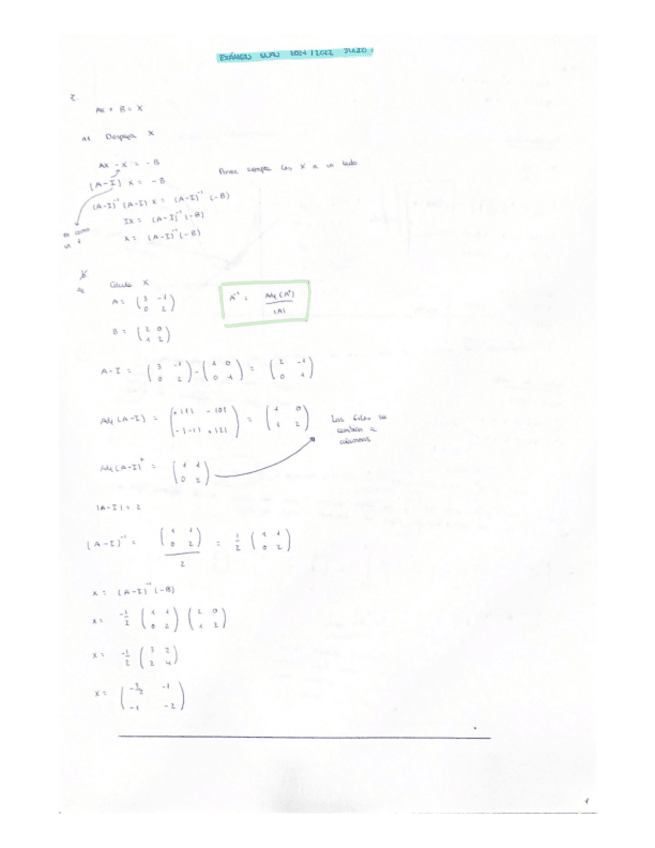 EXÁMEN 2021/2022 JULIO
2.
AX + B = X
a1 Despeja X
AX - X = -B
Poner siempre las X a un lado
(A-I) X = -B
(A-I)⁻¹ (A-I) X = (A-I)⁻¹ (-B)
IX = (A-I)⁻¹ (-B)
es como un 1
X = (A-I)⁻¹ (-B)
Calcula X
A = (3 -1
0 2)
A⁻¹ = Adj (Aᵗ) / |A|
B = (2 0
1 2)
A-I = (3 -1 - (1 0 = (2 -1
0 2) 0 1) 0 1)
Adj (A-I) = (+|1| -|0| = (1 0
-|-1| +|2|) 1 2)
Las filas se cambian a columnas
Adj (A-I)ᵗ = (1 1
0 2)
|A-I| = 2
(A-I)⁻¹ = (1 1 = 1/2 (1 1
0 2) 0 2)
2
X = (A-I)⁻¹ (-B)
X = -1/2 (1 1 (2 0
0 2) 1 2)
X = -1/2 (3 2
2 4)
X = (-3/2 -1
-1 -2)
1